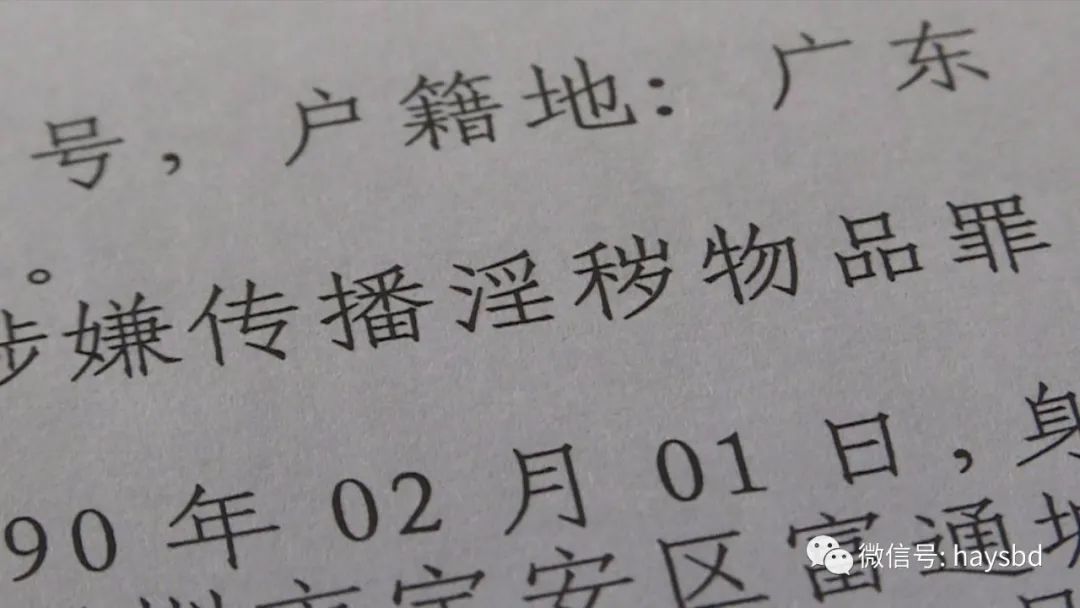 号，户籍地：广东
。
涉嫌传播淫秽物品罪
90年02月01日，身
圳市宝安区富通城
微信号: haysbd